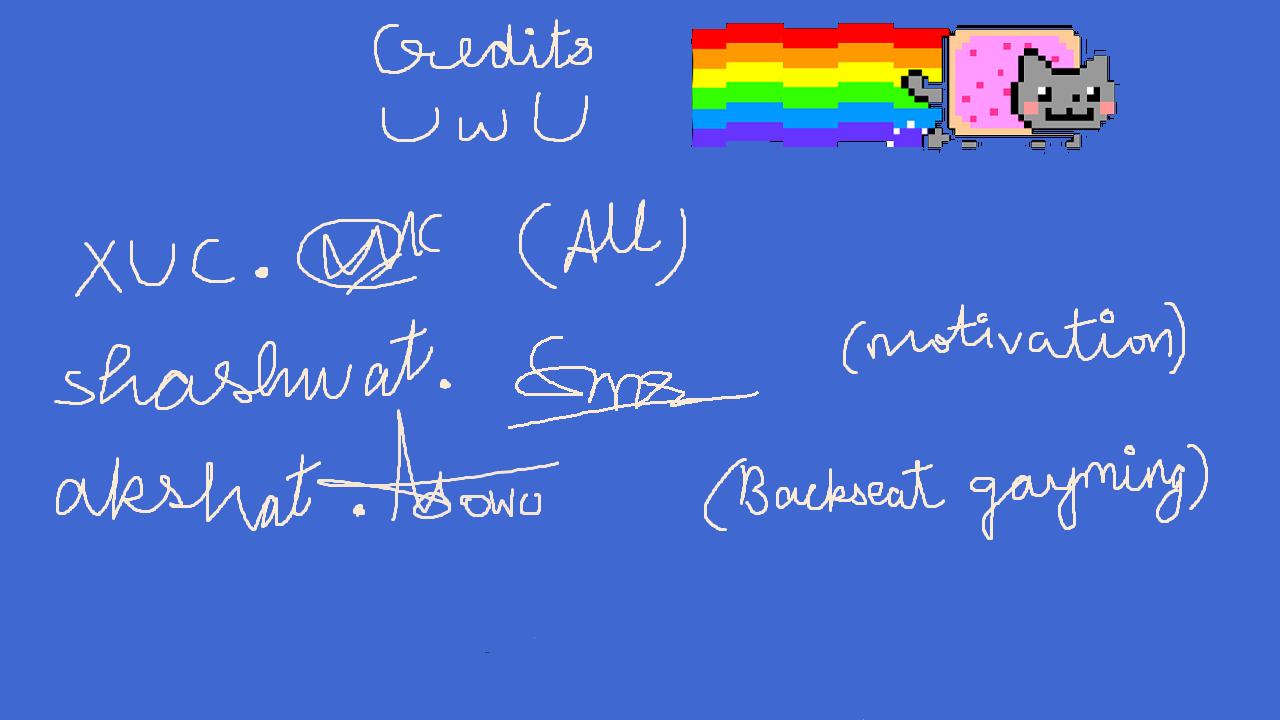 Credits
UwU
XUC. (All)
shashwat. (motivation)
akshat. (Backseat gayming)